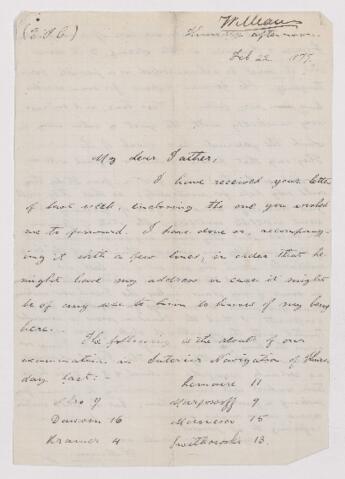 William
Thursday afternoon.
Feb 22
My dear Father,
I have received your letter
of last week, enclosing the one you wished
me to forward. I have done so, accompany-
ing it with a few lines, in order that he
might have my address in case it might
be of any use to him to know of my being
here.
The following is the result of our
examination in Interior Navigation of Thurs-
day last:-
9
Lemoine 11
9
Dawson 16
15
Kramer 4
13.